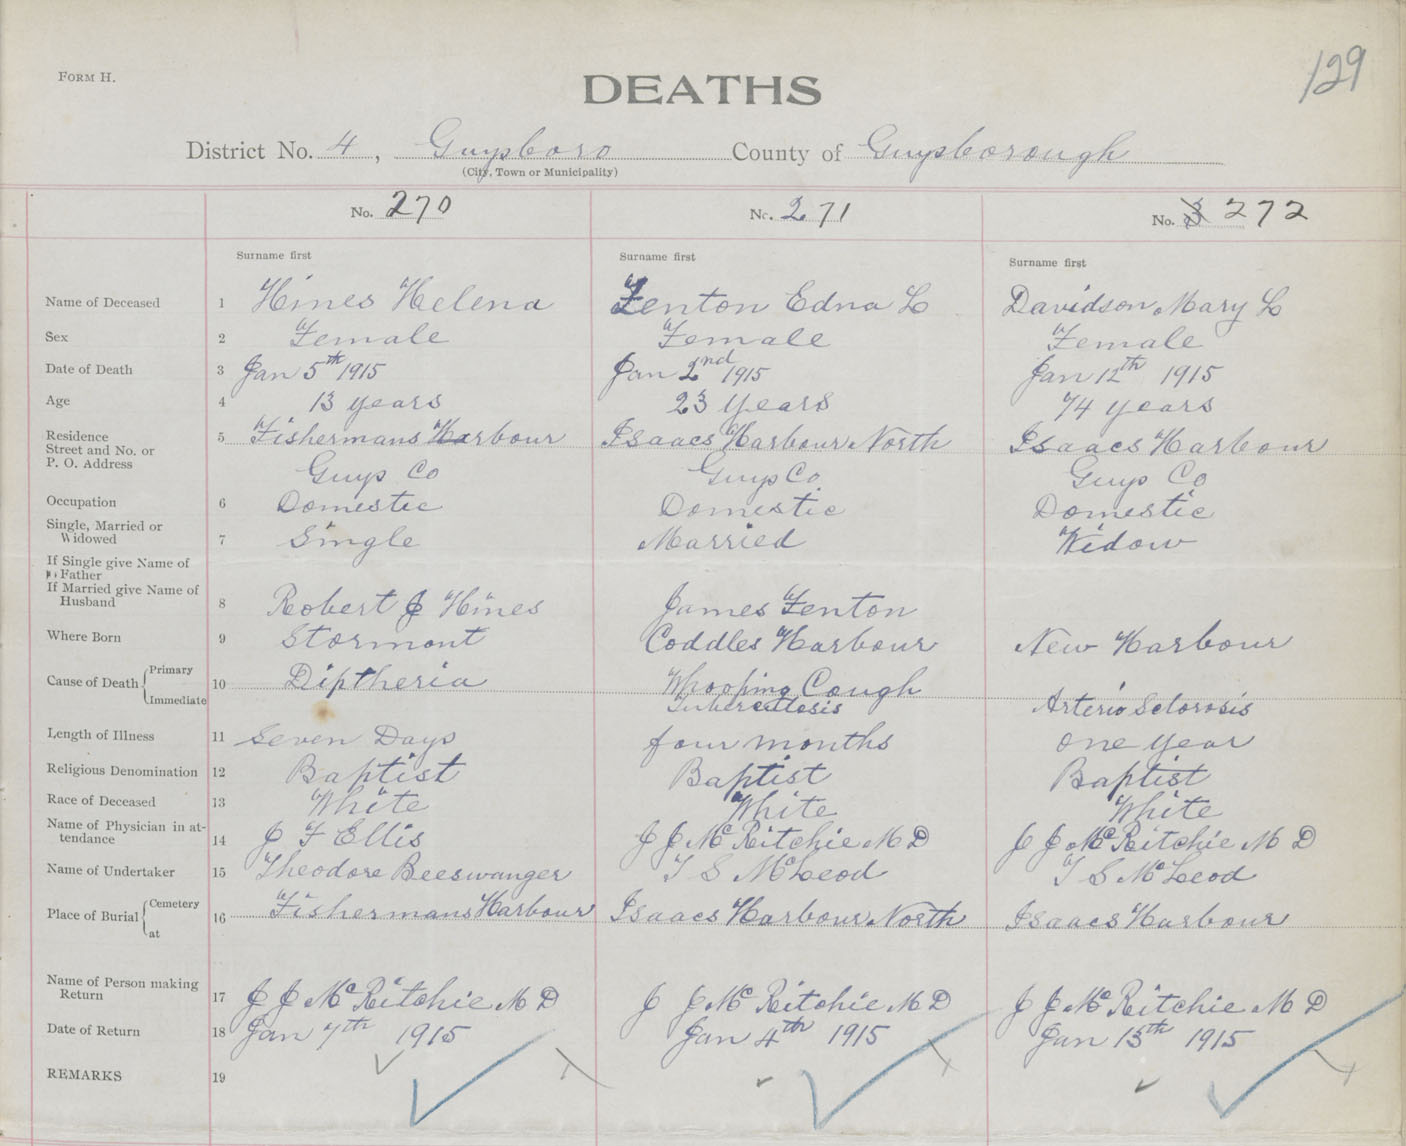 129
FORM H.
DEATHS
District No. 4, Guysboro County of Guysborough
(City, Town or Municipality)
No. 270 No. 271 No. 272
Surname first Surname first Surname first
Name of Deceased 1 Hines Helena Fenton Edna L Davidson Mary L
Sex 2 Female Female Female
Date of Death 3 Jan 5th 1915 Jan 2nd 1915 Jan 12th 1915
Age 4 13 years 23 years 74 years
Residence 5 Fishermans Harbour Isaacs Harbour North Isaacs Harbour
Street and No. or
P. O. Address Guys Co Guys Co Guys Co
Occupation 6 Domestic Domestic Domestic
Single, Married or
Widowed 7 Single Married Widow
If Single give Name of
Father
If Married give Name of
Husband 8 Robert J Hines James Fenton
Where Born 9 Stormont Coddles Harbour New Harbour
Cause of Death { Primary 10 Diptheria Whooping Cough
Immediate Tuberculosis Arterio Sclorosis
Length of Illness 11 Seven Days four months one year
Religious Denomination 12 Baptist Baptist Baptist
Race of Deceased 13 White White White
Name of Physician in at-
tendance 14 J F Ellis J J McRitchie M D J J McRitchie M D
Name of Undertaker 15 Theodore Beeswanger T S McLeod T S McLeod
Place of Burial { Cemetery 16 Fishermans Harbour Isaacs Harbour North Isaacs Harbour
at
Name of Person making
Return 17 J J McRitchie M D J J McRitchie M D J J McRitchie M D
Date of Return 18 Jan 7th 1915 Jan 4th 1915 Jan 13th 1915
REMARKS 19